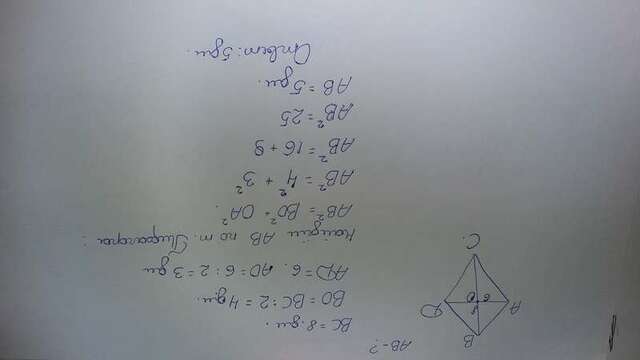 AB - ?
B
A
8
6
O
D
C.
BC = 8 дм.
BO = BC : 2 = 4 дм.
AD = 6. AO = 6 : 2 = 3 дм
Найдём AB по т. Пифагора:
AB² = BO² + OA².
AB² = 4² + 3²
AB² = 16 + 9
AB² = 25
AB = 5 дм.
Ответ: 5 дм.